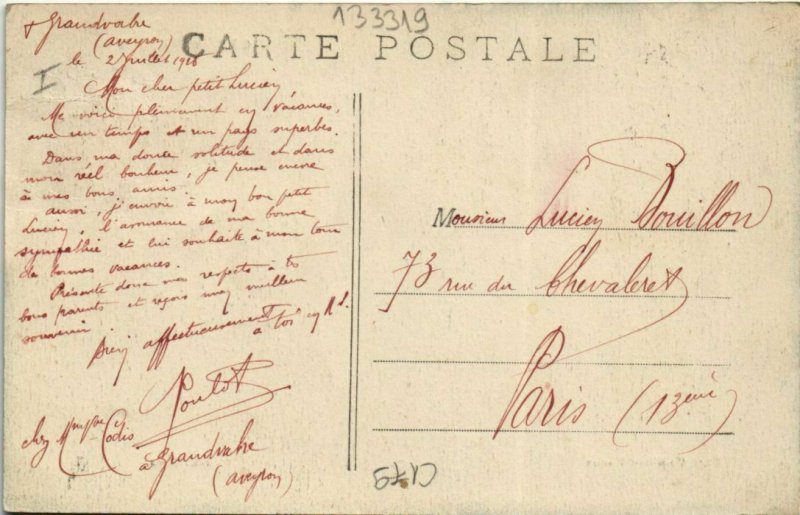 133319
CARTE POSTALE
+ Grandvabre
(aveyron)
le 2 Juillet 1918
I
Mon cher petit Lucien
Me voici pleinement en vacances,
avec un temps et un pays superbes.
Dans ma douce solitude et dans
mon réel bonheur, je pense encore
à mes bons amis.
aussi, j'envoie à mon bon petit
Lucien, l'assurance de ma bonne
sympathie et lui souhaite à mon tour
de bonnes vacances.
Présente donc mes respects à tes
bons parents et reçois mon meilleur
souvenir
Bien affectueusement
à toi en N. S.
Poulot
chez Mme Codis
à Grandvabre
(aveyron)
Monsieur Lucien Bouillon
73 rue du Chevaleret
Paris (13ème)